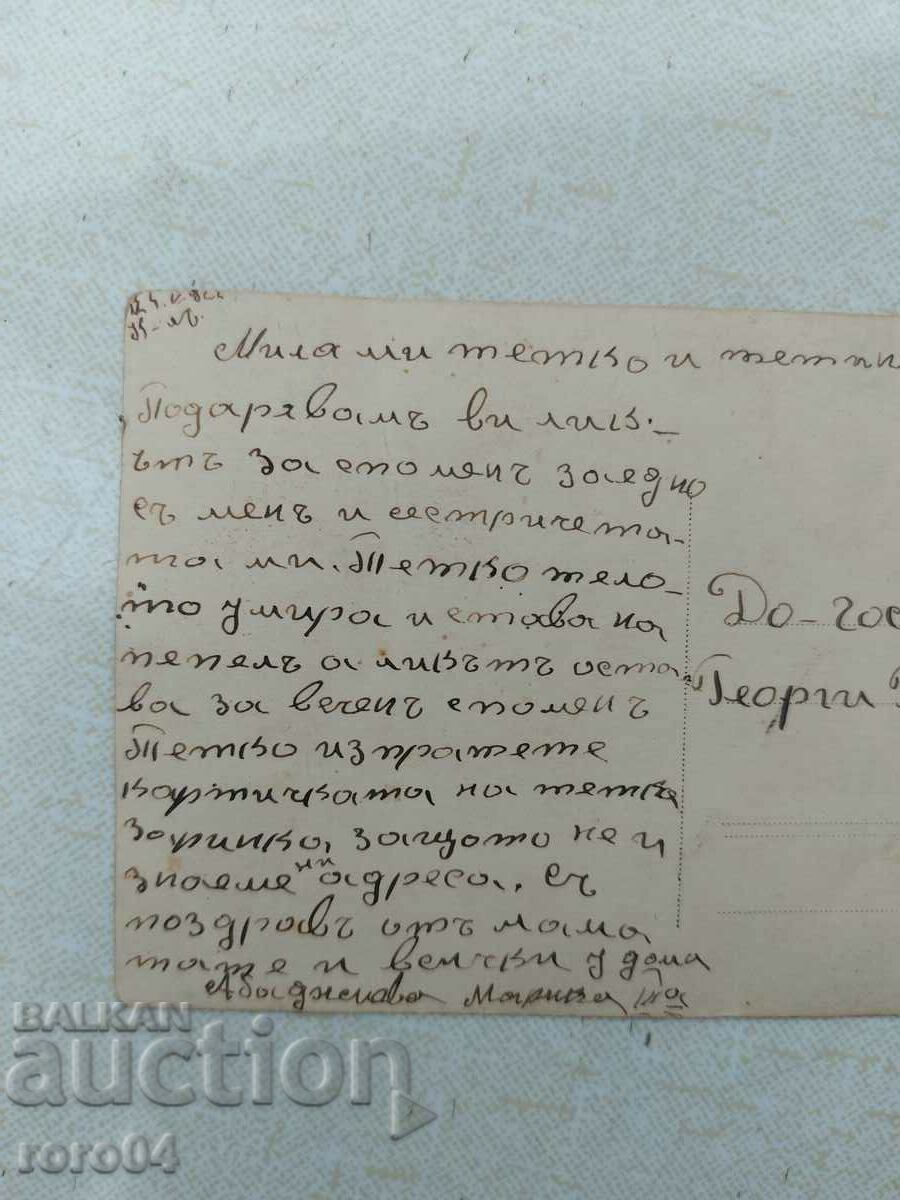 Мила ми тетко и
Подарявамъ ви лик.-
ътъ за споменъ заедно
съ менъ и сестричета-
та ми. Тетко тело-
то умира и става на
пепелъ а ликътъ оста
ва за веченъ споменъ
Тетко изпратете
картичката на тетка
Заринка, защото не и
знаеме ни адреса. Съ
поздравъ отъ мама
тате и всички у дома
Абаджиева Марика
До-гос
Георги
BALKAN
auction
roro04